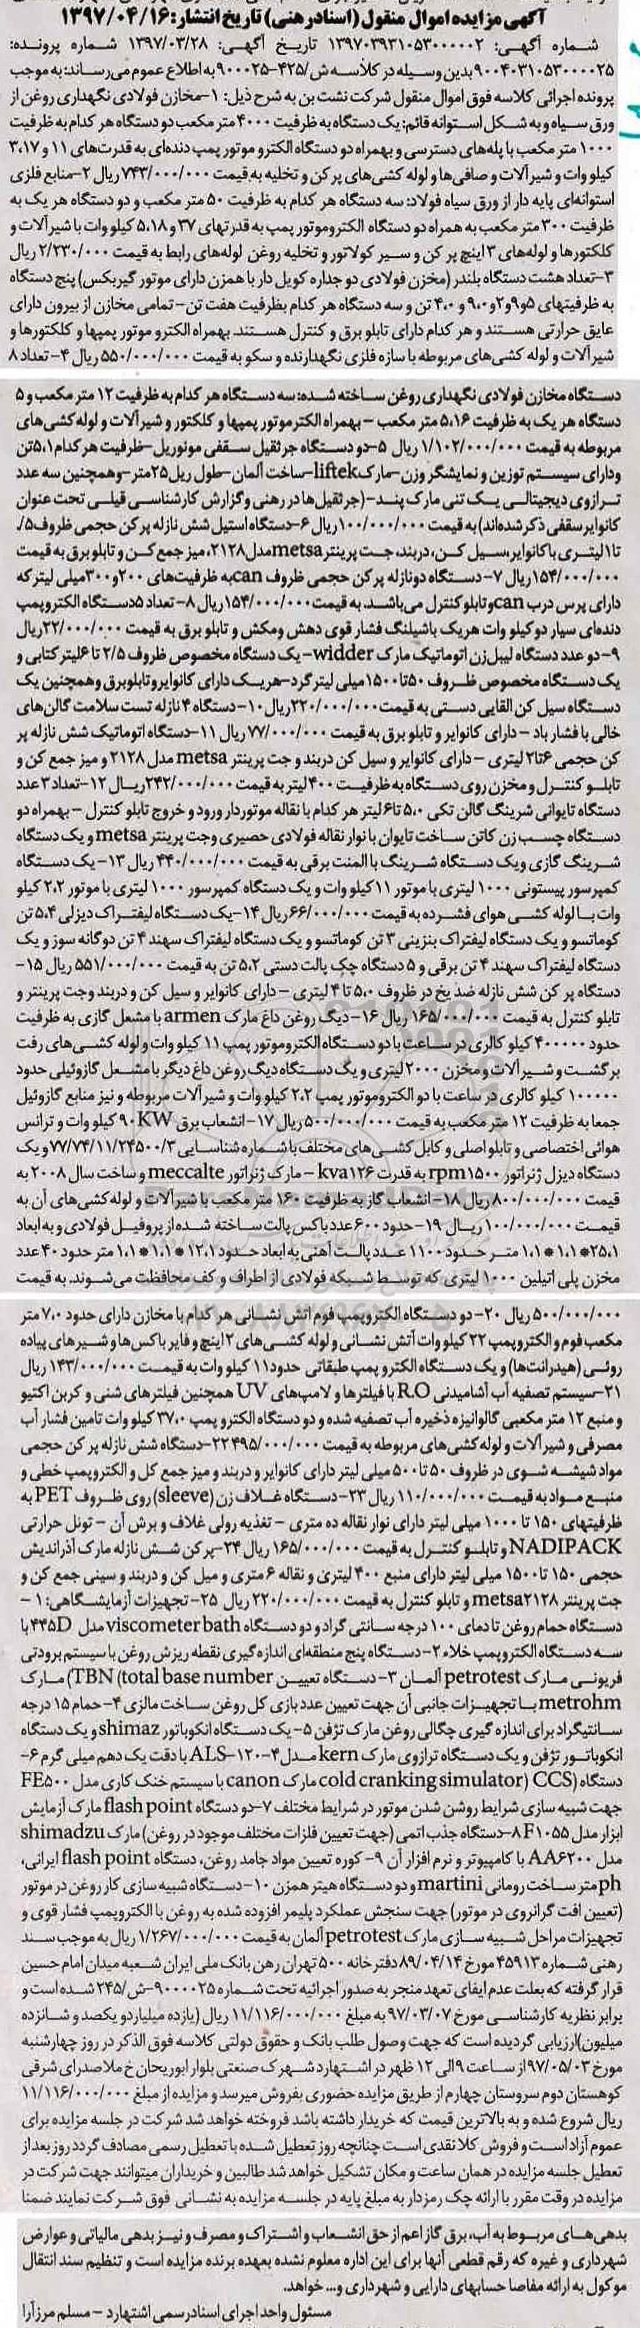 آگهی مزایده اموال منقول (اسناد رهنی) تاریخ انتشار: ۱۳۹۷/۰۴/۱۶
شماره آگهی: ۱۳۹۷۰۳۹۳۱۰۵۳۰۰۰۰۰۲ تاریخ آگهی: ۱۳۹۷/۰۳/۲۸ شماره پرونده:
۹۰۰۴۰۳۱۰۵۳۰۰۰۰۲۵ بدین وسیله در کلاسه ش/۴۲۵-۹۰۰۰۲۵ به اطلاع عموم می‌رساند: به موجب
پرونده اجرائی کلاسه فوق اموال منقول شرکت نشت بن به شرح ذیل: ۱-مخازن فولادی نگهداری روغن از
ورق سیاه و به شکل استوانه قائم: یک دستگاه به ظرفیت ۴۰۰۰ متر مکعب دو دستگاه هر کدام به ظرفیت
۱۰۰۰ متر مکعب با پله‌های دسترسی و بهمراه دو دستگاه الکترو موتور پمپ دنده‌ای به قدرت‌های ۱۱ و ۳،۱۷
کیلو وات و شیرآلات و صافی‌ها و لوله کشی‌های پر کن و تخلیه به قیمت ۷۴۳/۰۰۰/۰۰۰ ریال ۲-منابع فلزی
استوانه‌ای پایه دار از ورق سیاه فولاد: سه دستگاه هر کدام به ظرفیت ۵۰ متر مکعب و دو دستگاه هر یک به
ظرفیت ۳۰۰ متر مکعب به همراه دو دستگاه الکتروموتور پمپ به قدرتهای ۳۷ و ۵،۱۸ کیلو وات با شیرآلات و
کلکتورها و لوله‌های ۳ اینچ پر کن و سیر کولاتور و تخلیه روغن لوله‌های رابط به قیمت ۲/۲۳۰/۰۰۰ ریال
۳-تعداد هشت دستگاه بلندر (مخزن فولادی دو جداره کویل دار با همزن دارای موتور گیربکس) پنج دستگاه
به ظرفیتهای ۵و۹و۲و۹،۰ و ۴،۰ تن و سه دستگاه هر کدام بظرفیت هفت تن- تمامی مخازن از بیرون دارای
عایق حرارتی هستند و هر کدام دارای تابلو برق و کنترل هستند. بهمراه الکترو موتور پمپها و کلکتورها و
شیرآلات و لوله کشی‌های مربوطه با سازه فلزی نگهدارنده و سکو به قیمت ۵۵۰/۰۰۰/۰۰۰ ریال ۴- تعداد ۸
دستگاه مخازن فولادی نگهداری روغن ساخته شده: سه دستگاه هر کدام به ظرفیت ۱۲ متر مکعب و ۵
دستگاه هر یک به ظرفیت ۵،۱۶ متر مکعب - بهمراه الکترموتور پمپها و کلکتور و شیرآلات و لوله کشی‌های
مربوطه به قیمت ۱/۱۰۲/۰۰۰/۰۰۰ ریال ۵-دو دستگاه جرثقیل سقفی مونوریل-ظرفیت هر کدام ۵،۱تن
ودارای سیستم توزین و نمایشگر وزن-مارک liftek-ساخت آلمان-طول ریل ۲۵متر-وهمچنین سه عدد
ترازوی دیجیتالی یک تنی مارک پند-(جرثقیل‌ها در رهنی و گزارش کارشناسی قبلی تحت عنوان
کانوایر سقفی ذکر شده‌اند) به قیمت ۱۰۰/۰۰۰/۰۰۰ ریال ۶-دستگاه استیل شش نازله پر کن حجمی ظروف ۵/.
تا ۱لیتری با کانوایر،سیل کن، دربند، جت پرینتر metsaمدل۲۱۲۸، میز جمع کن و تابلو برق به قیمت
۱۵۴/۰۰۰/۰۰۰ ریال ۷- دستگاه دو نازله پر کن حجمی ظروف canبه ظرفیت‌های ۲۰۰و ۳۰۰میلی لیتر که
دارای پرس درب canوتابلو کنترل می‌باشد. به قیمت ۱۵۴/۰۰۰/۰۰۰ ریال ۸- تعداد ۵دستگاه الکترو پمپ
دنده‌ای سیار دو کیلو وات هریک باشیلنگ فشار قوی دهش ومکش و تابلو برق به قیمت ۲۲/۰۰۰/۰۰۰ریال
۹-دو عدد دستگاه لیبل‌زن اتوماتیک مارک widder- یک دستگاه مخصوص ظروف ۲/۵ تا ۶لیتر کتابی و
یک دستگاه مخصوص ظروف ۵۰تا ۱۵۰۰میلی لیتر گرد-هریک دارای کانوایر و تابلو برق وهمچنین یک
دستگاه سیل کن القایی دستی به قیمت ۲۲۰/۰۰۰/۰۰۰ ریال ۱۰-دستگاه ۴ نازله تست سلامت گالن‌های
خالی با فشار باد - دارای کانوایر و تابلو برق به قیمت ۷۷/۰۰۰/۰۰۰ ریال ۱۱-دستگاه اتوماتیک شش نازله پر
کن حجمی ۶تا۲ لیتری - دارای کانوایر و سیل کن دربند و جت پرینتر metsa مدل ۲۱۲۸ و میز جمع کن و
تابلو کنترل و مخزن روی دستگاه به ظرفیت ۴۰۰لیتر به قیمت ۲۴۲/۰۰۰/۰۰۰ریال ۱۲-تعداد ۳ عدد
دستگاه تایوانی شرینگ گالن تکی ۵،۰ تا ۶لیتر هر کدام با نقاله موتوردار ورود و خروج تابلو کنترل - بهمراه دو
دستگاه چسب زن کاتن ساخت تایوان با نوار نقاله فولادی حصیری وجت پرینتر metsa و یک دستگاه
شرینگ گازی ویک دستگاه شرینگ با المنت برقی به قیمت ۴۴۰/۰۰۰/۰۰۰ ریال ۱۳- یک دستگاه
کمپرسور پیستونی ۱۰۰۰ لیتری با موتور ۱۱ کیلو وات و یک دستگاه کمپرسور ۱۰۰۰ لیتری با موتور ۲،۲ کیلو
وات با لوله کشی هوای فشرده به قیمت ۶۶/۰۰۰/۰۰۰ ریال ۱۴-یک دستگاه لیفتراک دیزلی ۵،۴ تن
کوماتسو و یک دستگاه لیفتراک بنزینی ۳ تن کوماتسو و یک دستگاه لیفتراک سهند ۴ تن دوگانه سوز و یک
دستگاه لیفتراک سهند ۴ تن برقی و ۵ دستگاه جک پالت دستی ۵،۲ تن به قیمت ۵۵۱/۰۰۰/۰۰۰ ریال ۱۵-
دستگاه پر کن شش نازله ضد یخ در ظروف ۵،۰ تا ۴ لیتری - دارای کانوایر و سیل کن و دربند وجت پرینتر و
تابلو کنترل به قیمت ۱۶۵/۰۰۰/۰۰۰ ریال ۱۶-دیگ روغن داغ مارک armen با مشعل گازی به ظرفیت
حدود ۴۰۰۰۰۰ کیلو کالری در ساعت با دو دستگاه الکتروموتور پمپ ۱۱ کیلو وات و لوله کشی‌های رفت
برگشت و شیرآلات و مخزن ۲۰۰۰ لیتری و یک دستگاه دیگ روغن داغ دیگر با مشعل گازوئیلی حدود
۱۰۰۰۰۰ کیلو کالری در ساعت با دو الکتروموتور پمپ ۲،۲ کیلو وات و شیرآلات مربوطه و نیز منابع گازوئیل
جمعا به ظرفیت ۱۲ متر مکعب به قیمت ۵۰۰/۰۰۰/۰۰۰ ریال ۱۷-انشعاب برق ۹۰KW کیلو وات و ترانس
هوائی اختصاصی و تابلو اصلی و کابل کشی‌های مختلف با شماره شناسایی ۷۷/۷۴/۱۱/۲۴۵۰۰/۳ و یک
دستگاه دیزل ژنراتور rpm۱۵۰۰ به قدرت kva۱۲۶ - مارک ژنراتور meccalte و ساخت سال ۲۰۰۸ به
قیمت ۸۰۰/۰۰۰/۰۰۰ ریال ۱۸- انشعاب گاز به ظرفیت ۱۶۰ متر مکعب با شیرآلات و لوله کشی‌های آن به
قیمت ۱۰۰/۰۰۰/۰۰۰ ریال ۱۹-حدود ۶۰۰ عدد باکس پالت ساخته شده از پروفیل فولادی و به ابعاد
۲۵،۱*۱،۱*۱،۱ متر حدود ۱۱۰۰ عدد پالت آهنی به ابعاد حدود ۱۲،۱*۱،۱*۱،۱ متر حدود ۴۰ عدد
مخزن پلی اتیلین ۱۰۰۰ لیتری که توسط شبکه فولادی از اطراف و کف محافظت می‌شوند. به قیمت
۵۰۰/۰۰۰/۰۰۰ ریال ۲۰- دو دستگاه الکتروپمپ فوم آتش نشانی هر کدام با مخازن دارای حدود ۷،۰ متر
مکعب فوم و الکتروپمپ ۲۲ کیلو وات آتش نشانی و لوله کشی‌های ۲ اینچ و فایر باکس‌ها و شیرهای پیاده
روئی (هیدرانت‌ها) و یک دستگاه الکترو پمپ طبقاتی حدود۱۱ کیلو وات به قیمت ۱۴۳/۰۰۰/۰۰۰ ریال
۲۱-سیستم تصفیه آب آشامیدنی R.O با فیلترها و لامپ‌های UV همچنین فیلترهای شنی و کربن اکتیو
و منبع ۱۲ متر مکعبی گالوانیزه ذخیره آب تصفیه شده و دو دستگاه الکترو پمپ ۳۷،۰ کیلو وات تامین فشار آب
مصرفی و شیرآلات و لوله کشی‌های مربوطه به قیمت ۴۹۵/۰۰۰/۰۰۰ ۲۲-دستگاه شش نازله پر کن حجمی
مواد شیشه شوی در ظروف ۵۰ تا ۵۰۰ میلی لیتر دارای کانوایر و دربند و میز جمع کل و الکتروپمپ خطی و
منبع مواد به قیمت ۱۱۰/۰۰۰/۰۰۰ ریال ۲۳-دستگاه غلاف زن (sleeve) روی ظروف PET به
ظرفیتهای ۱۵۰ تا ۱۰۰۰ میلی لیتر دارای نوار نقاله ده متری - تغذیه رولی غلاف و برش آن - تونل حرارتی
NADIPACK و تابلو کنترل به قیمت ۱۶۵/۰۰۰/۰۰۰ ریال ۲۴-پر کن شش نازله مارک آذراندیش
حجمی ۱۵۰ تا ۱۵۰۰ میلی لیتر دارای منبع ۴۰۰ لیتری و نقاله ۶ متری و میل کن و دربند و سینی جمع کن و
جت پرینتر metsa۲۱۲۸ و تابلو کنترل به قیمت ۲۲۰/۰۰۰/۰۰۰ ریال ۲۵- تجهیزات آزمایشگاهی: ۱-
دستگاه حمام روغن تا دمای ۱۰۰ درجه سانتی گراد و دو دستگاه viscometer bath مدل ۴۴۵D با
سه دستگاه الکتروپمپ خلاء ۲-دستگاه پنج منطقه‌ای اندازه گیری نقطه ریزش روغن با سیستم برودتی
فریونی مارک petrotest آلمان ۳-دستگاه تعیین TBN (total base number) مارک
metrohm با تجهیزات جانبی آن جهت تعیین عدد بازی کل روغن ساخت مالزی ۴-حمام ۱۵ درجه
سانتیگراد برای اندازه گیری چگالی روغن مارک تژفن ۵- یک دستگاه انکوباتور shimaz و یک دستگاه
انکوباتور تژفن و یک دستگاه ترازوی مارک kern مدل ALS-۱۲۰-۴ با دقت یک دهم میلی گرم ۶-
دستگاه cold cranking simulator) CCS) مارک canon با سیستم خنک کاری مدل FE۵۰۰
جهت شبیه سازی شرایط روشن شدن موتور در شرایط مختلف ۷-دو دستگاه flash point مارک آزمایش
ابزار مدل F۱۰۵۵ ۸-دستگاه جذب اتمی (جهت تعیین فلزات مختلف موجود در روغن) مارک shimadzu
مدل AA۶۲۰۰ با کامپیوتر و نرم افزار آن ۹- کوره تعیین مواد جامد روغن، دستگاه flash point ایرانی،
phمتر ساخت رومانی martini و دو دستگاه هیتر همزن ۱۰-دستگاه شبیه سازی کار روغن در موتور
(تعیین افت گرانروی در موتور) جهت سنجش عملکرد پلیمر افزوده شده به روغن با الکتروپمپ فشار قوی و
تجهیزات مراحل شبیه سازی مارک petrotest آلمان به قیمت ۱/۲۶۷/۰۰۰/۰۰۰ ریال به موجب سند
رهنی شماره ۴۵۹۱۳ مورخ ۸۹/۰۴/۱۴ دفترخانه ۵۰۰ تهران رهن بانک ملی ایران شعبه میدان امام حسین
قرار گرفته که بعلت عدم ایفای تعهد منجر به صدور اجرائیه تحت شماره ۹۰۰۰۰۲۵-ش/۲۴۵ شده است و
برابر نظریه کارشناسی مورخ ۹۷/۰۳/۰۷ به مبلغ ۱۱/۱۱۶/۰۰۰/۰۰۰ ریال (یازده میلیارد و یکصد و شانزده
میلیون) ارزیابی گردیده است که جهت وصول طلب بانک و حقوق دولتی کلاسه فوق الذکر در روز چهارشنبه
مورخ ۹۷/۰۵/۰۳ از ساعت ۹ الی ۱۲ ظهر در اشتهارد شهرک صنعتی بلوار ابوریحان خ ملاصدرای شرقی
کوهستان دوم سروستان چهارم از طریق مزایده حضوری بفروش میرسد و مزایده از مبلغ ۱۱/۱۱۶/۰۰۰/۰۰۰
ریال شروع شده و به بالاترین قیمت که خریدار داشته باشد فروخته خواهد شد شرکت در جلسه مزایده برای
عموم آزاد است و فروش کلا نقدی است چنانچه روز تعطیل شده با تعطیل رسمی مصادف گردد روز بعد از
تعطیل جلسه مزایده در همان ساعت و مکان تشکیل خواهد شد طالبین و خریداران میتوانند جهت شرکت در
مزایده در وقت مقرر با ارائه چک رمزدار به مبلغ پایه در جلسه مزایده به نشانی فوق شرکت نمایند ضمنا
بدهی‌های مربوط به آب، برق گاز اعم از حق انشعاب و اشتراک و مصرف و نیز بدهی مالیاتی و عوارض
شهرداری و غیره که رقم قطعی آنها برای این اداره معلوم نشده بعهده برنده مزایده است و تنظیم سند انتقال
موکول به ارائه مفاصا حسابهای دارایی و شهرداری و... خواهد.
مسئول واحد اجرای اسناد رسمی اشتهارد - مسلم مرزآرا